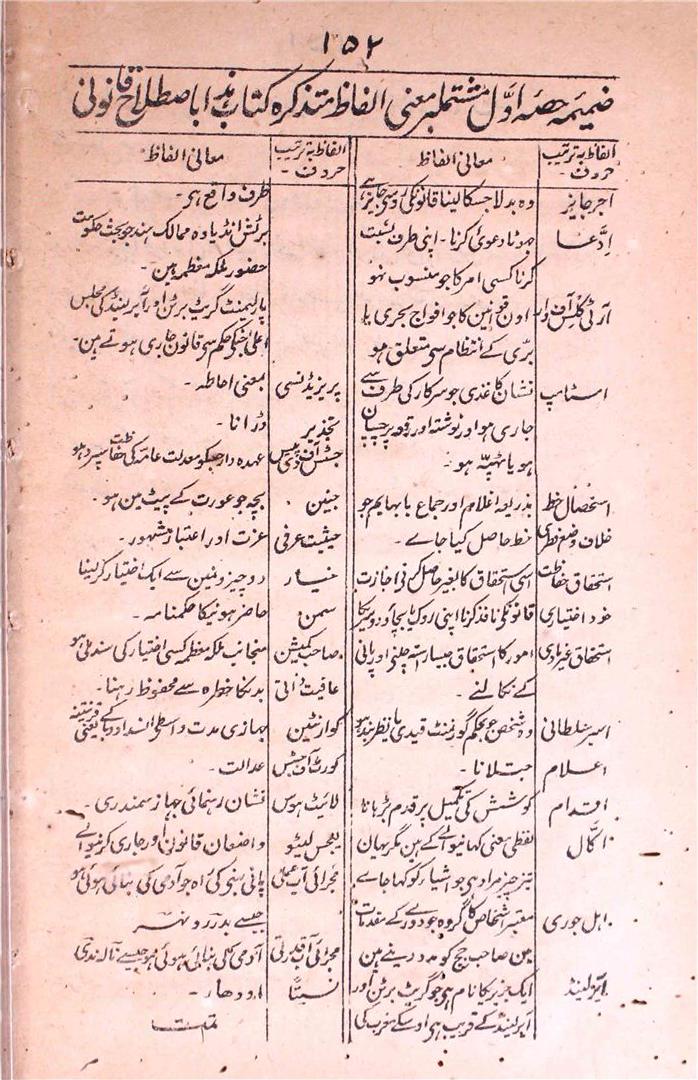 ۱۵۲
ضمیمہ حصہ اوّل مشتملبر معنی الفاظ متذکرہ کتاب ہذا باصطلاح قانونی
الفاظ بہ ترتیب حروف - معانی الفاظ
اجر جایز وہ بدلا جسکا لینا قانونکی روسے جایز ہے
اِدَّعا جھوٹا دعویٰ کرنا - اپنی طرف نسبت
کرنا کسی امر کا جو منسوب نہو
آرٹیکلس آف وار اون قوانین کا جو افواج بحری یا
برّی کے انتظام سے متعلق ہو
اسٹامپ نشان کاغذی جو سرکار کی طرف سے
جاری ہو اور نوشتہ اور رقعہ پر چسپان
ہو یا ٹھپّہ ہو -
استحصال حظ بذریعہ اغلام اور جماع یا بہایم جو
خلاف وضع فطری حظ حاصل کیا جاے -
استحقاق حفاظت اسی استحقاق کا بغیر حاصل کرنے اجازت
خود اختیاری قانونکے نافذ کرنا اپنی روک یا بچاؤ دوسریکا
استحقاق غیر مادی امور کا استحقاق جیسا راستہ چلنے اور پانی
کے نکالنے -
اسیر سلطانی وہ شخص جو بحکم گورنمنٹ قیدی یا نظربند ہو
اعلام جتلانا -
اقدام کوشش کی تکمیل پر قدم بڑہانا
اکّال لفظی معنی کہانیوالے کے ہین مگر یہان
تیز چیز مراد ہے جو اشیار کو کہا جاے
اہل جوری معتبر اشخاص کا گروہ جو دورے کے مقدمات
مین صاحب جج کو مدد دیتے ہین
آیرلینڈ ایک جزیرہ کا نام ہے جو گریٹ برٹن اور
آیرلینڈ کے قریب ہے اوسکے مغرب کی
الفاظ بہ ترتیب حروف - معانی الفاظ
طرف واقع ہے -
برٹش انڈیا وہ ممالک ہند جو تحت حکومت
حضور ملکہ معظمہ ہین -
پارلیمنٹ گریٹ برٹن اور آیرلینڈ کی مجلس
اعلیٰ جسکے حکم سے قانون جاری ہوتے ہین -
پریزیڈنسی بمعنی احاطہ -
تحذیر ڈرانا -
جسٹس آف دی پیس عہدہ دار جسکو معدلت عامہ کی حفاظت سپرد ہو
جنین بچہ جو عورت کے پیٹ مین ہو -
حیثیت عرفی عزت اور اعتبار مشہور -
خیار دو چیزونمین سے ایک اختیار کرلینا
سمن حاضر ہونیکا حکمنامہ -
صاحب کمیشن منجانب ملکہ معظمہ کسی اختیار کی سند ملی ہو
عافیت ذاتی بدنکا خطرہ سے محفوظ رہنا -
کوارنٹین جہازی مدت واسطے انسداد وبا کے یعنی قرنتینہ
کورٹ آف جسٹس عدالت -
لائیٹ ہوس نشان رہنمائی جہاز سمندری -
لیجس لیٹو واضعان قانون اور جاری کرنیوالے
مجرائی آب عملی پانی بہنے کی راہ جو آدمی کی بنائی ہوئی ہو
جیسے بدررو و نہر
مجرائی آب قدرتی آدمی کی بنائی ہوئی نہو جیسے نالہ ندی
نسبتًا اودھار -
تمت